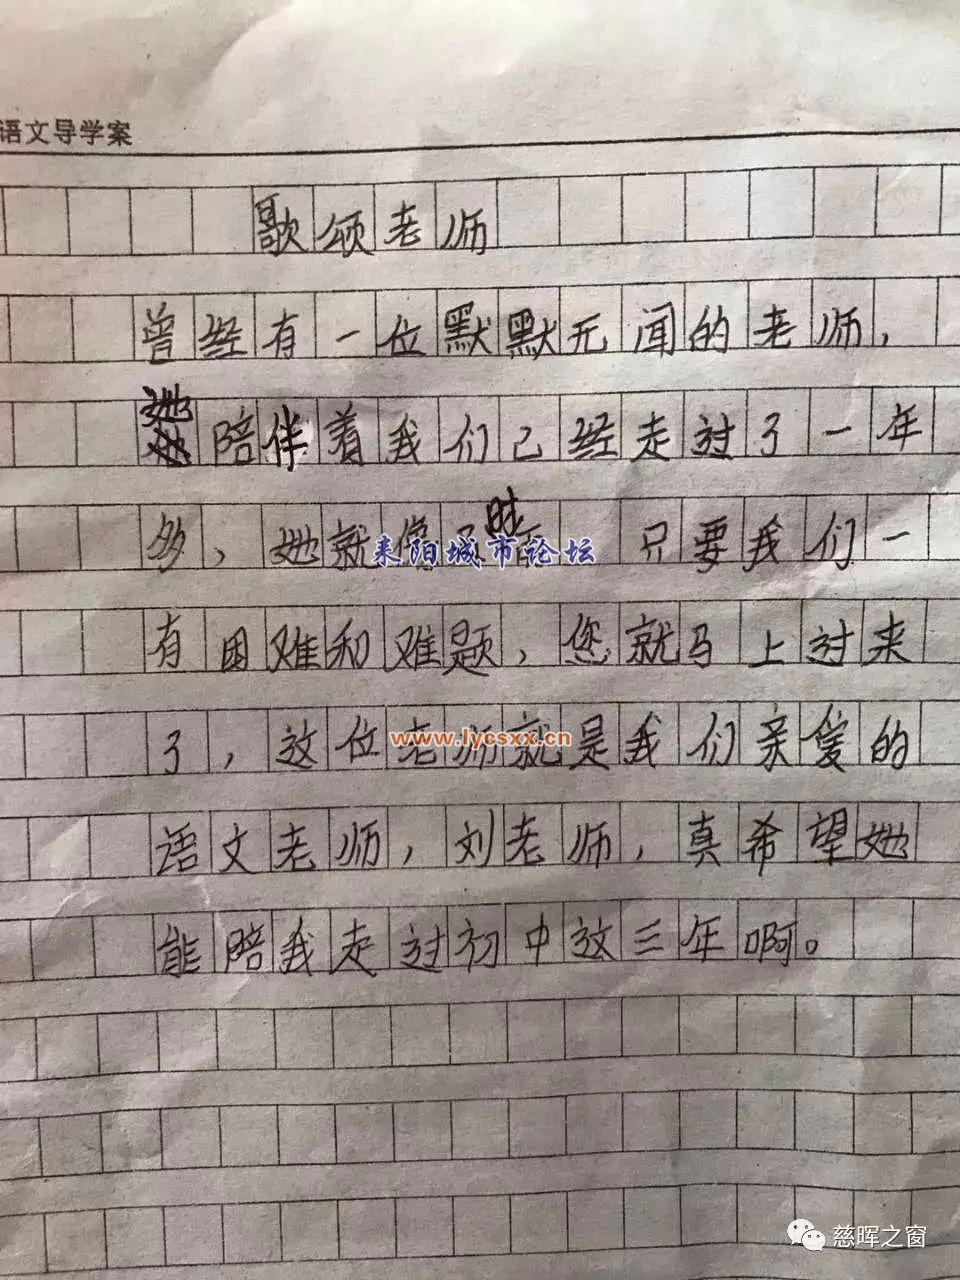 语文导学案
歌颂老师
曾经有一位默默无闻的老师，
她陪伴着我们已经走过了一年
多，她就像 时 只要我们一
耒阳城市论坛
有困难和难题，您就马上过来
了，这位老师就是我们亲爱的
www.lycsxx.cn
语文老师，刘老师，真希望她
能陪我走过初中这三年啊。
慈晖之窗